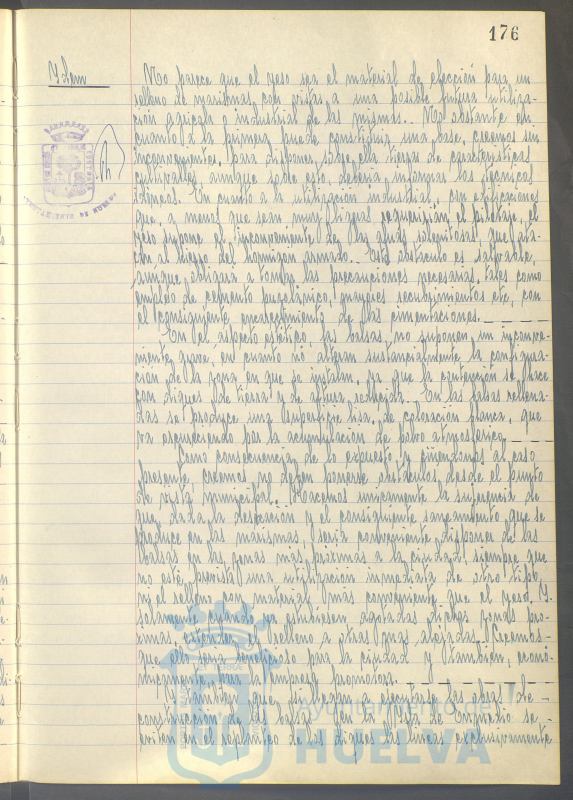 176
Idem
No parece que el yeso sea el material de elección para un
relleno de marismas, con vistas a una posible futura utiliza-
ción agrícola o industrial de las mismas.. No obstante en
cuanto a la primera puede constituir una base, creemos sin
inconvenientes, para disponer sobre ella tierras de características
culturales aunque sobre esto, debería informar los técnicos
idóneos. En cuanto a la utilización industrial, con edificaciones
que, a menos que sean muy ligeras requerirían el pilotaje, el
yeso supone el inconveniente de las aguas selenitosas, que ata-
can al hierro del hormigón armado. Este obstáculo es salvable,
aunque, obligará a tomar las precauciones necesarias, tales como
empleo de cemento puzolánico, mayores recubrimientos etc, con
el consiguiente encarecimiento de las cimentaciones.
En el aspecto estético, las balsas, no suponen un inconve-
niente grave, en cuanto no alteran sustancialmente la configura-
ción de la zona en que se instalan, ya que la contención se hace
con diques de tierra y de altura reducida. En las balsas rellena-
das se produce una superficie lisa, de coloración blanca, que
va oscureciendo por la acumulación de polvo atmosférico.
Como consecuencia de lo expuesto y ciñendonos al caso
presente, creemos, no deben ponerse obstáculos desde el punto
de vista municipal. Hacemos unicamente la sugerencia de
que, dada la desecación y el consiguiente saneamiento que se
produce en las marismas, sería conveniente disponer de las
balsas en las zonas más próximas a la ciudad, siempre que
no esté prevista una utilización inmediata de otro tipo,
ni el relleno con material más conveniente que el yeso. Y
solamente cuando ya estuviesen agotadas dichas zonas pró-
ximas, extender el relleno a otras mas alejadas. Creemos
que, ello sería beneficioso para la ciudad y también, econó-
micamente para la Empresa promotora.
Y instar que, si llegan a ejecutarse las obras de
construcción de las balsas en la Isla de Enmedio se
eviten en el replanteo de los diques las líneas exclusivamente
Ayuntamiento de
HUELVA